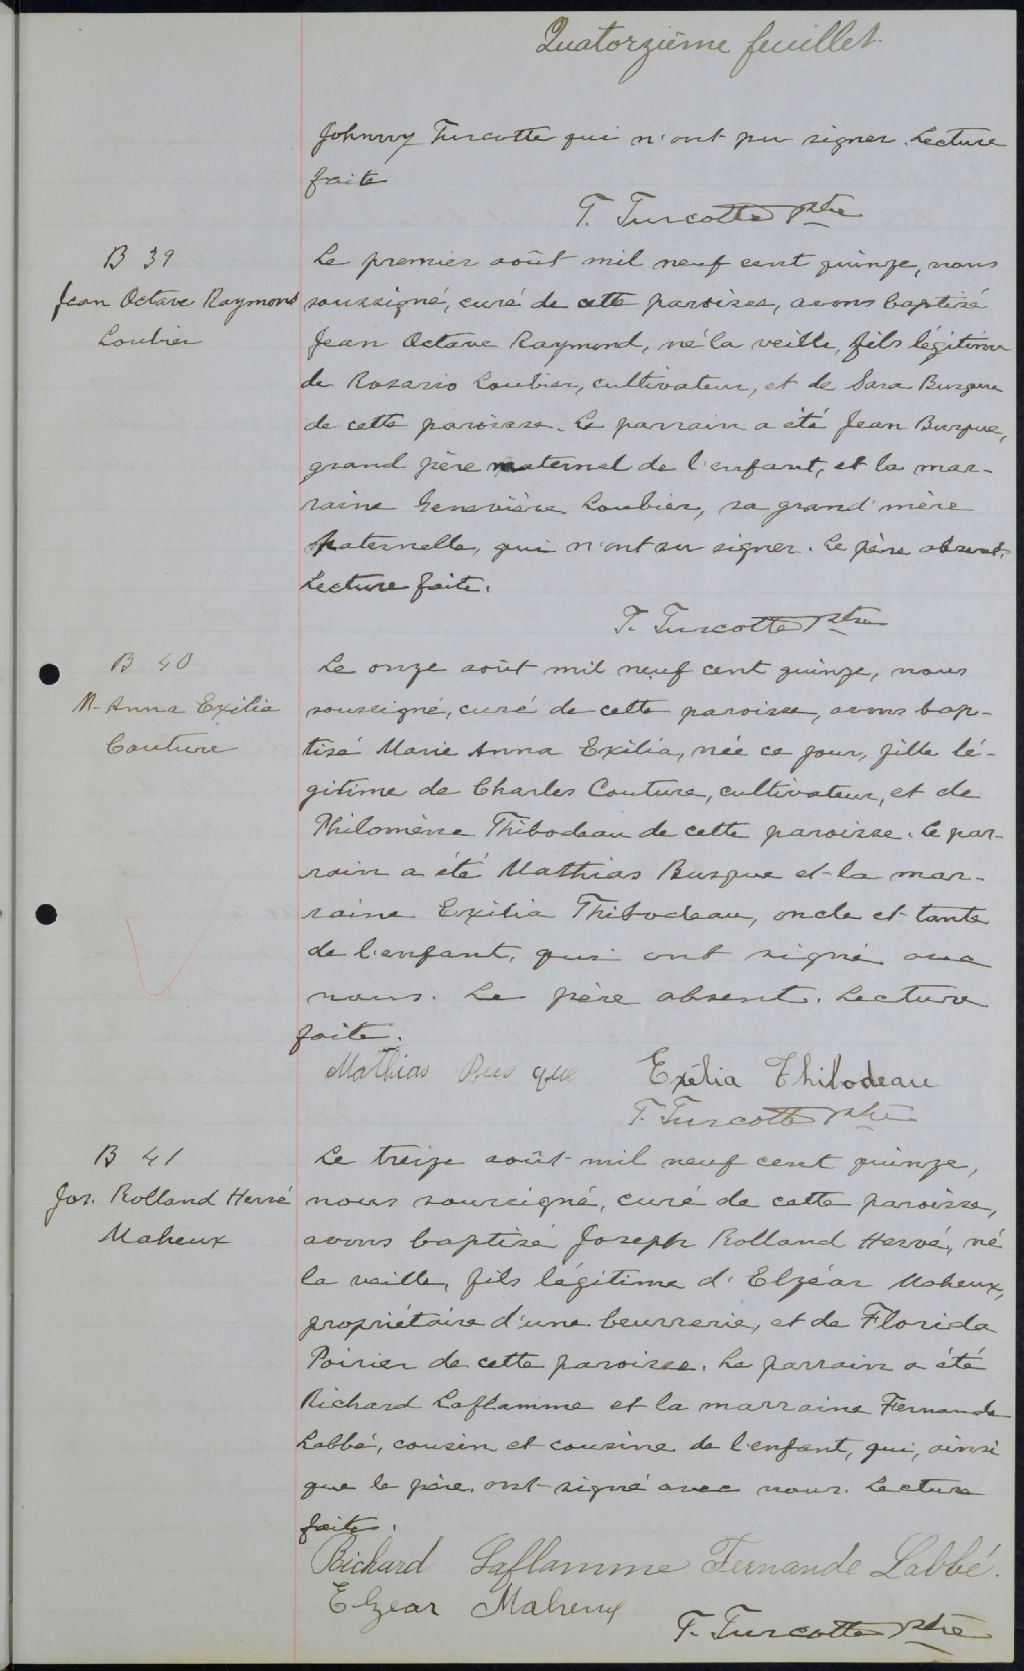 Quatorzième feuillet
Johnny Turcotte qui n'ont pu signer. Lecture
faite
T. Turcotte Ptre
B 39
Jean Octave Raymond
Loubier
Le premier août mil neuf cent quinze, nous
soussigné, curé de cette paroisse, avons baptisé
Jean Octave Raymond, né la veille, fils légitime
de Rosario Loubier, cultivateur, et de Sara Busque
de cette paroisse. Le parrain a été Jean Busque,
grand père maternel de l'enfant, et la mar-
raine Geneviève Loubier, sa grand'mère
paternelle, qui n'ont su signer. Le père absent.
Lecture faite.
T. Turcotte Ptre
B 40
M. Anna Exilia
Couture
Le onze août mil neuf cent quinze, nous
soussigné, curé de cette paroisse, avons bap-
tisé Marie Anna Exilia, née ce jour, fille lé-
gitime de Charles Couture, cultivateur, et de
Philomène Thibodeau de cette paroisse. Le par-
rain a été Mathias Busque et la mar-
raine Exilia Thibodeau, oncle et tante
de l'enfant, qui ont signé avec
nous. Le père absent. Lecture
faite.
Mathias Busque Exélia Thibodeau
T. Turcotte Ptre
B 41
Jos. Rolland Hervé
Maheux
Le treize août mil neuf cent quinze,
nous soussigné, curé de cette paroisse,
avons baptisé Joseph Rolland Hervé, né
la veille, fils légitime d'Elzéar Maheux,
propriétaire d'une beurrerie, et de Florida
Poirier de cette paroisse. Le parrain a été
Richard Laflamme et la marraine Fernande
Labbé, cousin et cousine de l'enfant, qui, ainsi
que le père, ont signé avec nous. Lecture
faite.
Richard Laflamme Fernande Labbé.
Elzear Maheux
T. Turcotte Ptre